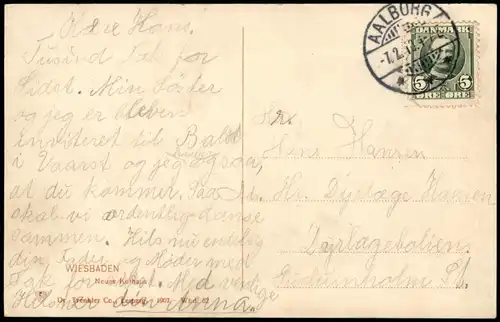 Kære Hans.
Tusind Tak for
sidst. Min Søster
og jeg er bleven
inviteret til Bald
i Vaarst og jeg
at du kommer. Saa
skal vi ordentlig danse
sammen. Hils nu endelig
din Fader og Moder med
Tak for sidst. Med venlige
Hilsner
WIESBADEN
Neues Kurhaus
Dr. Trenkler Co., Leipzig. 1907.
AALBORG
-7.2.12.
DANMARK
5 5
ØRE ØRE
Hr.
Hans Hansen
Hr. Dyrlæge Hansen
Dyrlægebolien
Gudumholm St.